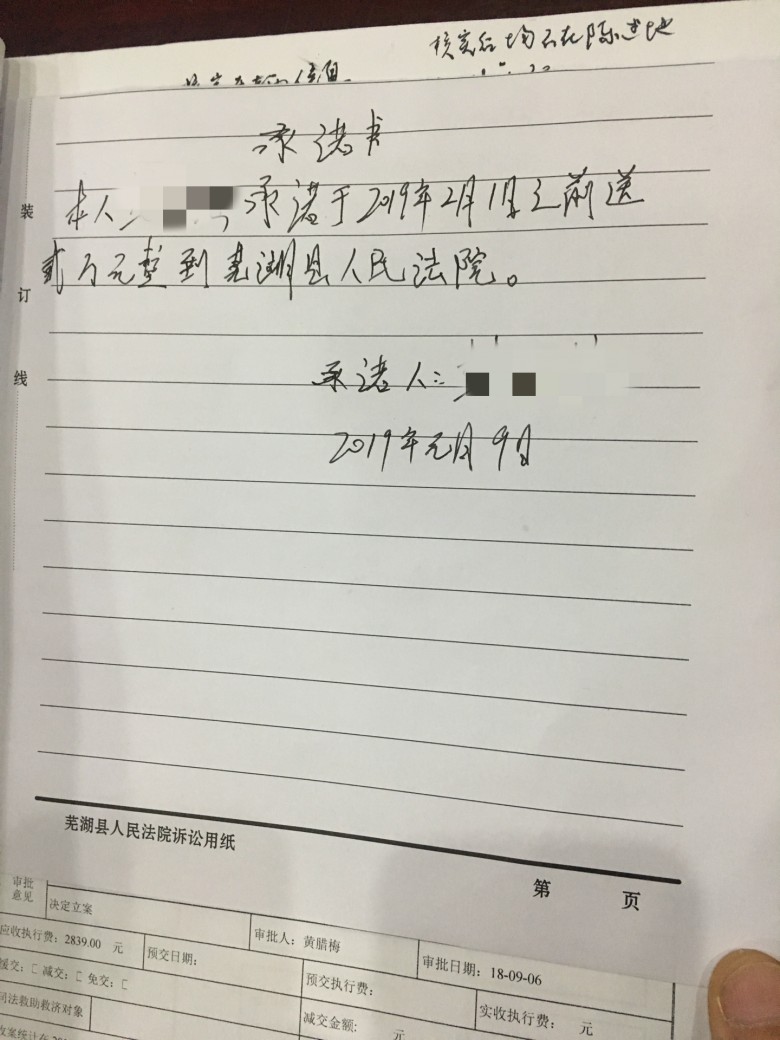 核实后均不在陈述地
承诺书
本人 承诺于2019年2月1日之前送
贰万元整到芜湖县人民法院。
承诺人:
2019年元月9日
装
订
线
芜湖县人民法院诉讼用纸
第 页
审批
意见
决定立案
应收执行费：2839.00 元
预交日期：
审批人：黄腊梅
审批日期：18-09-06
缓交：[ 减交：[ 免交：[
预交执行费：
实收执行费： 元
司法救助救济对象
减交金额: 元